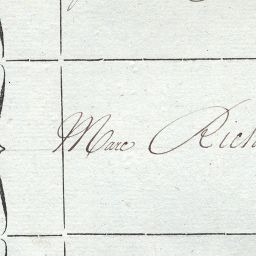 Marc Rich